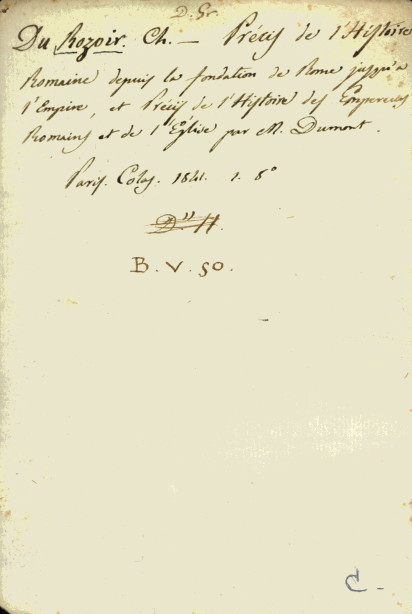 D. Gr.
Du Rozoir. Ch. — Précis de l'Histoire
Romaine depuis la fondation de Rome jusqu'à
l'Empire, et Précis de l'Histoire des Empereurs
Romains et de l'Eglise par M. Dumont.
Paris. Colas. 1841. 1. 8°
D." H.
B. V. 50.
C -